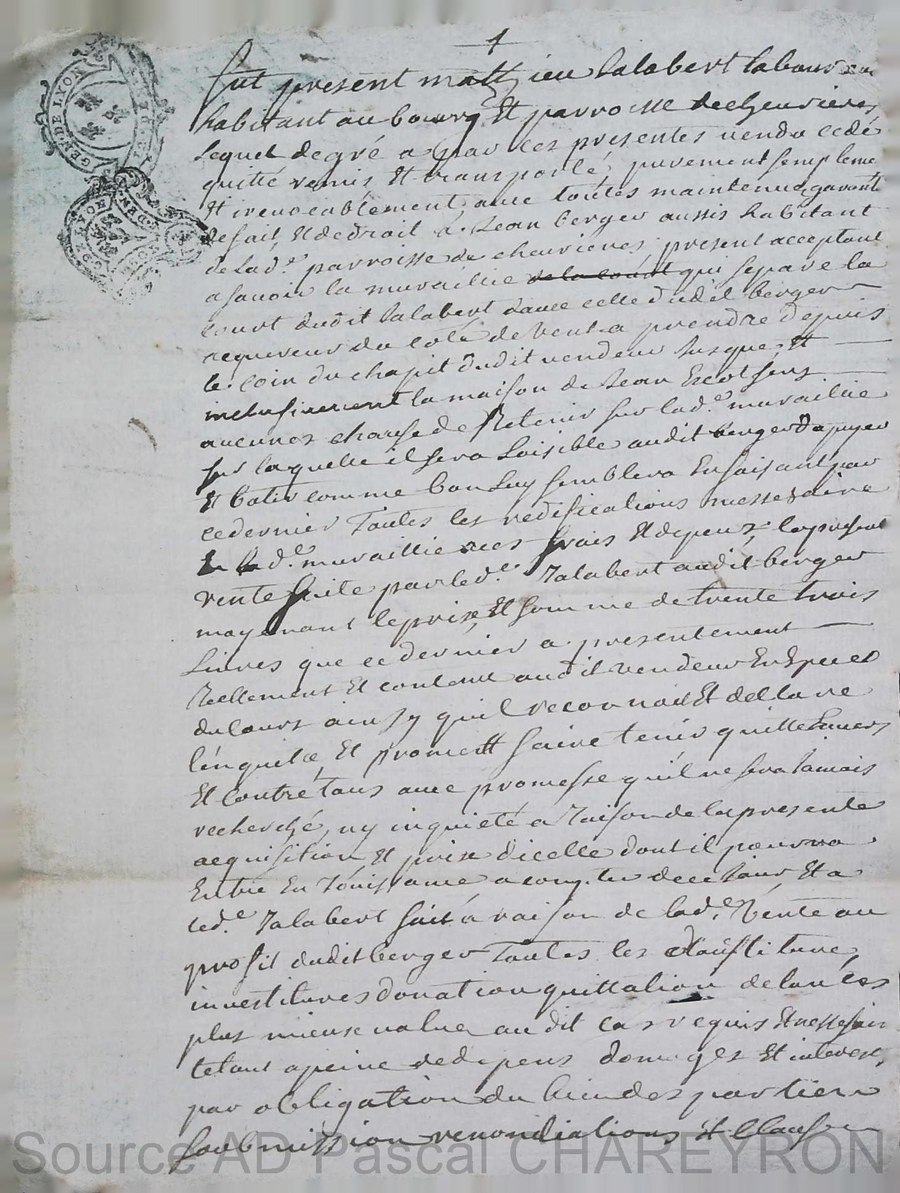 1
GEN. DE LYON
fut present mathieu Jalabert laboureur
habitant au bourg Et parroisse de chevrieres
Lequel de gré a par ces presentes vendu cedé
quitté remis Et transporté, purement sempleme
Et irevocablement, avec toutes maintenue, garantie
de fait, Et de droit à Jean berger aussis habitant
de lad.e parroisse de chevrieres present acceptant
a savoir la muraillie de la court qui separe la
court dudit Jalabert d'avec celle dudit berger
acquereur du coté de vent a prendre depuis
le coin du chapit dudit vendeur Jusques Et
inclusivement la maison de Jean Escot sens
aucunes charge de Retenir sur lad.e muraillie
sur laquelle il sera Loisible audit berger d'apuyer
Et batir comme bon Luy semblera En faisant par
ce dernier Toutes les redifications nessessaire
a lad.e muraillie a ces frais Et depens, la presente
vente faite par led.t Jalabert audit berger
mayenant le prix, Et somme de trente trois
Livres que ce dernier a presentement
Reellement Et contenu audit vendeur En Especes
du cours ainsy qu'il reconnoit Et declare
l'enquite, Et promett faire tenir quitte Envers
Et contre tous avec promesse qu'il ne sera Jamais
recherché, ny inquieté a Raison de la presente
acquisition Et prise d'icelle dont il pourra
Entre En Jouissance a compter de ce Jour Et a
led.t Jalabert fait à raison de lad.e Vente au
profit dudit berger Toutes les clausTiture,
investitures donation quittation de lances
plus mieuse value audit cas requis Et nessesair
tetant a peine de depens domages Et interest,
par obligation du bien des parties
soubmission renondiations Et Clause
Source AD Pascal CHAREYRON